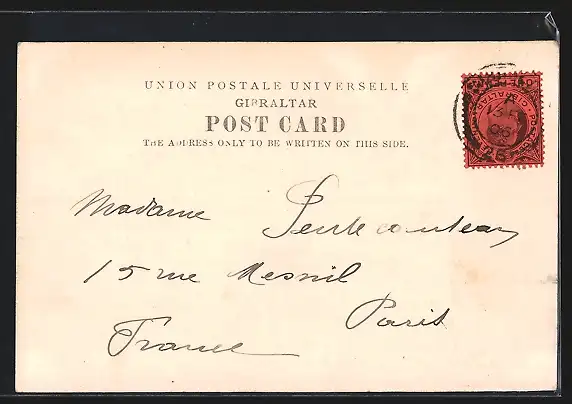 UNION POSTALE UNIVERSELLE
GIBRALTAR
POST CARD
THE ADDRESS ONLY TO BE WRITTEN ON THIS SIDE.
Madame
15 rue Mesnil
Paris
France
GIBRALTAR
A
06